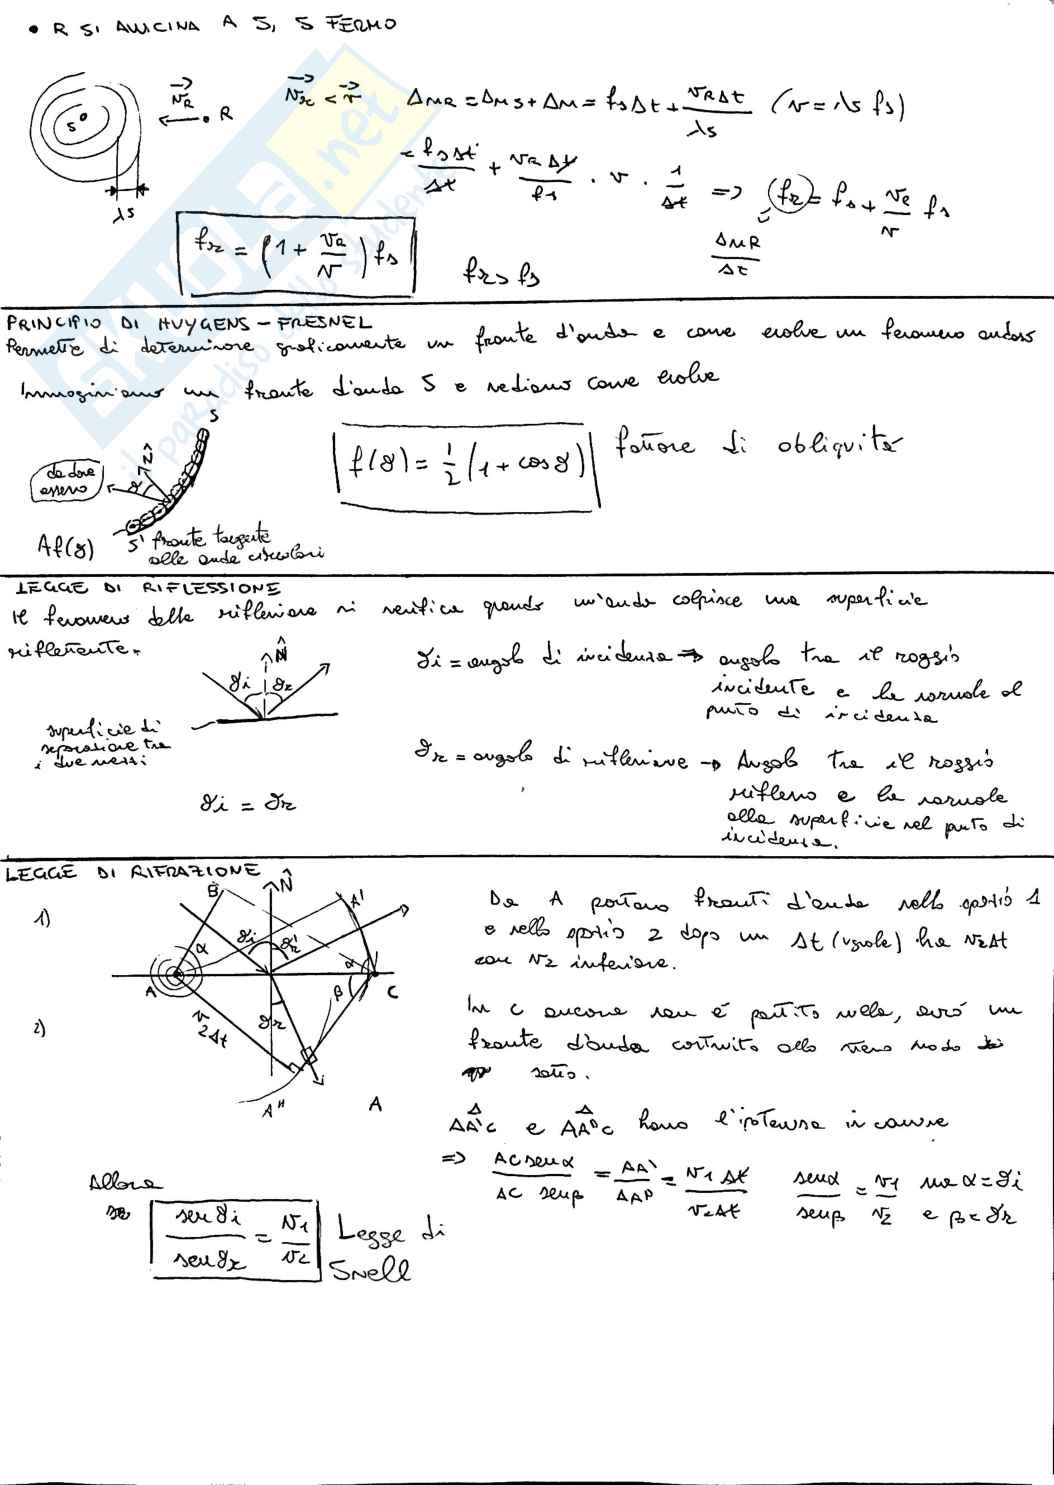 • R SI AVVICINA A S, S FERMO
S° λs
v⃗R R
v⃗r < v⃗
ΔnR = Δns + Δn = fsΔt + vRΔt/λs (v = λs fs)
= fsΔt/Δt + vRΔt/fs · v · 1/Δt => (fr) = fs + vR/v fs
ΔnR/Δt
fr = (1 + vR/v) fs
fr > fs
PRINCIPIO DI HUYGENS - FRESNEL
Permette di determinare graficamente un fronte d'onda e come evolve un fenomeno ondoso
Immaginiamo un fronte d'onda S e vediamo come evolve
S
da dove osservo
ϑ N̂
Af(ϑ)
S' fronte tangente alle onde circolari
f(ϑ) = 1/2 (1 + cosϑ) fattore di obliquità
LEGGE DI RIFLESSIONE
Il fenomeno della riflessione si verifica quando un'onda colpisce una superficie
riflettente.
N̂
ϑi ϑr
superficie di
separazione tra
i due mezzi
ϑi = ϑr
ϑi = angolo di incidenza => angolo tra il raggio
incidente e la normale al
punto di incidenza
ϑr = angolo di riflessione → Angolo tra il raggio
riflesso e la normale
alla superficie nel punto di
incidenza.
LEGGE DI RIFRAZIONE
1)
2)
B N̂ A'
ϑi ϑr'
α α
A β C
v2Δt ϑr
A'' A
Da A partono fronti d'onda nello spazio 1
e nello spazio 2 dopo un Δt (uguale) ha v2Δt
con v2 inferiore.
In C ancora non è partito nulla, avrò un
fronte d'onda costruito allo stesso modo di
sotto.
AA'C e AA''C hanno l'ipotenusa in comune
=> AC senα/AC senβ = AA'/AA'' = v1Δt/v2Δt senα/senβ = v1/v2 ma α = ϑi
e β = ϑr
Allora
senϑi/senϑr = v1/v2 Legge di
Snell